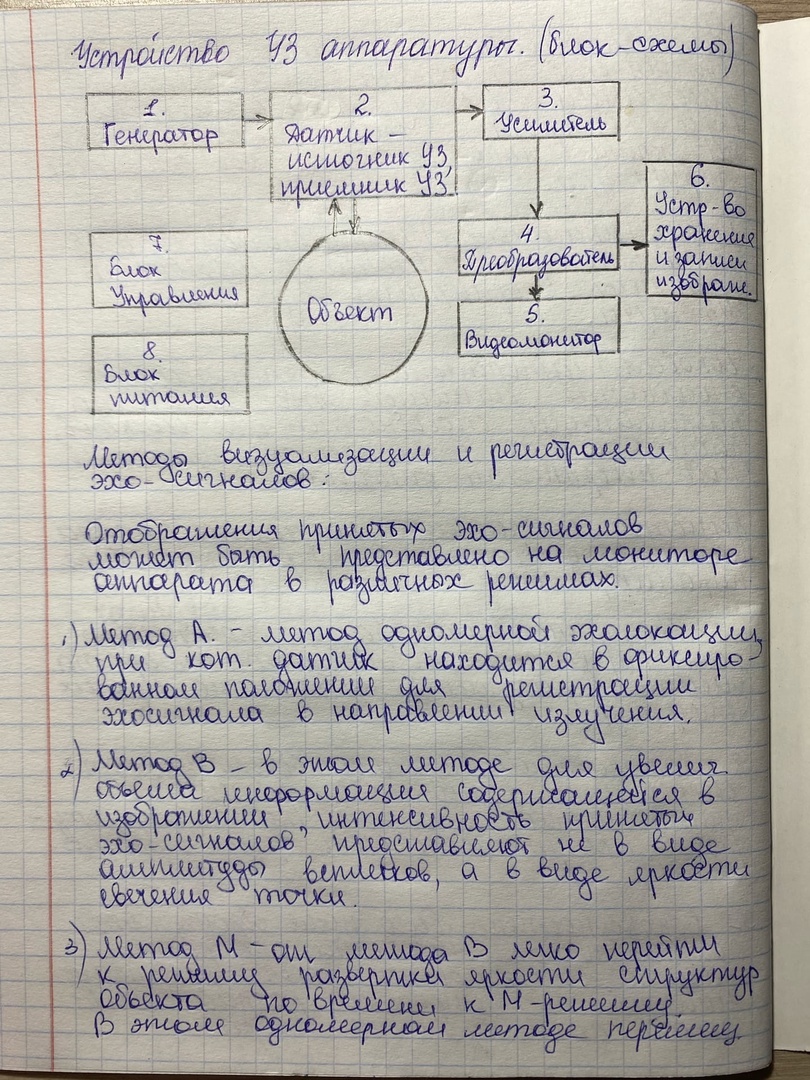 Устройство УЗ аппаратуры. (блок-схемы)
1.
Генератор
2.
Датчик –
источник УЗ,
приемник УЗ
3.
Усилитель
4.
Преобразователь
5.
Видеомонитор
6.
Устр-во
хранения
и записи
изображ.
7.
Блок
Управления
8.
Блок
питания
Объект
Методы визуализации и регистрации
эхо-сигналов:
Отображения принятых эхо-сигналов
может быть представлено на мониторе
аппарата в различных режимах.
1) Метод А. – метод одномерной эхолокации,
при кот. датчик находится в фиксиро-
ванном положении для регистрации
эхосигнала в направлении излучения.
2) Метод В – в этом методе для увелич.
объема информации содержащейся в
изображении, интенсивность принятых
эхо-сигналов представляют не в виде
амплитуды всплесков, а в виде яркости
свечения точки.
3) Метод М – от метода В легко перейти
к режиму развертки яркости структур
объекта по времени к М-режиму.
В этом одномерном методе перемещ.